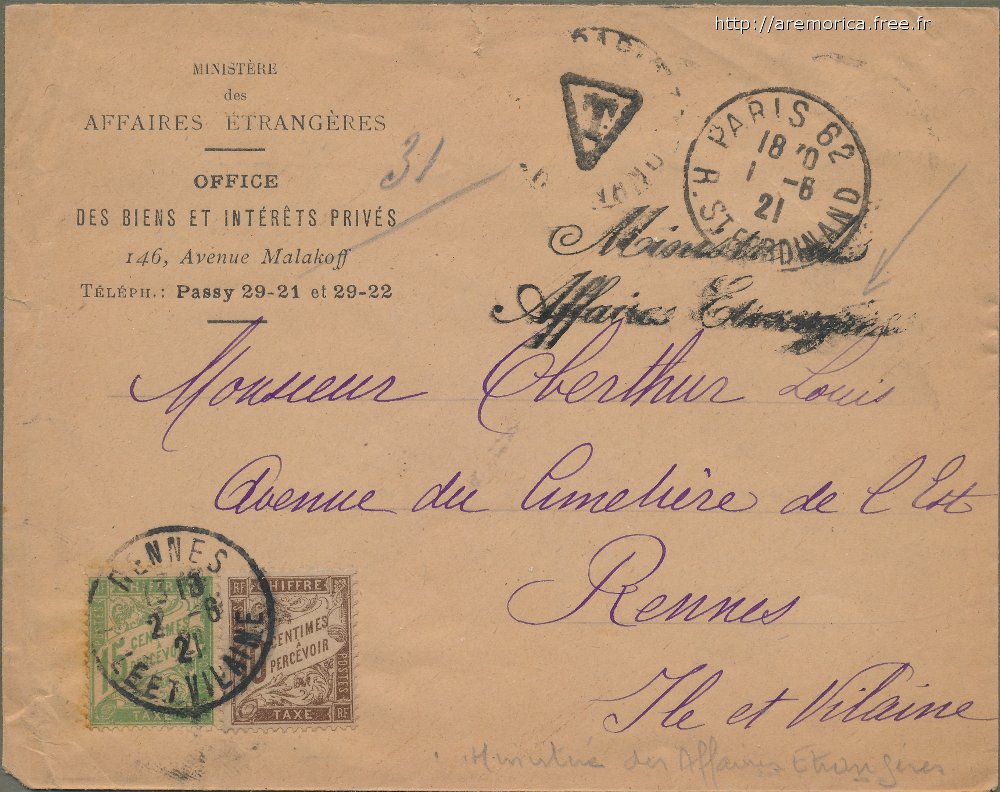 http://aremorica.free.fr
MINISTÈRE
des
AFFAIRES ÉTRANGÈRES
OFFICE
DES BIENS ET INTÉRÊTS PRIVÉS
146, Avenue Malakoff
TÉLÉPH.: Passy 29-21 et 29-22
31
T
PARIS 62
18 10
1 -6
21
R. ST FERDINAND
Affaires
Monsieur Oberthur Louis
Avenue du Cimetière de l'Est
Rennes
Ile et Vilaine
RENNES
18
2 -6
21
ILLE ET VILAINE
CHIFFRE
15 CENTIMES
À
PERCEVOIR
TAXE
RF CHIFFRE
CENTIMES
À
PERCEVOIR
POSTES
TAXE RF
des Affaires Etrangères